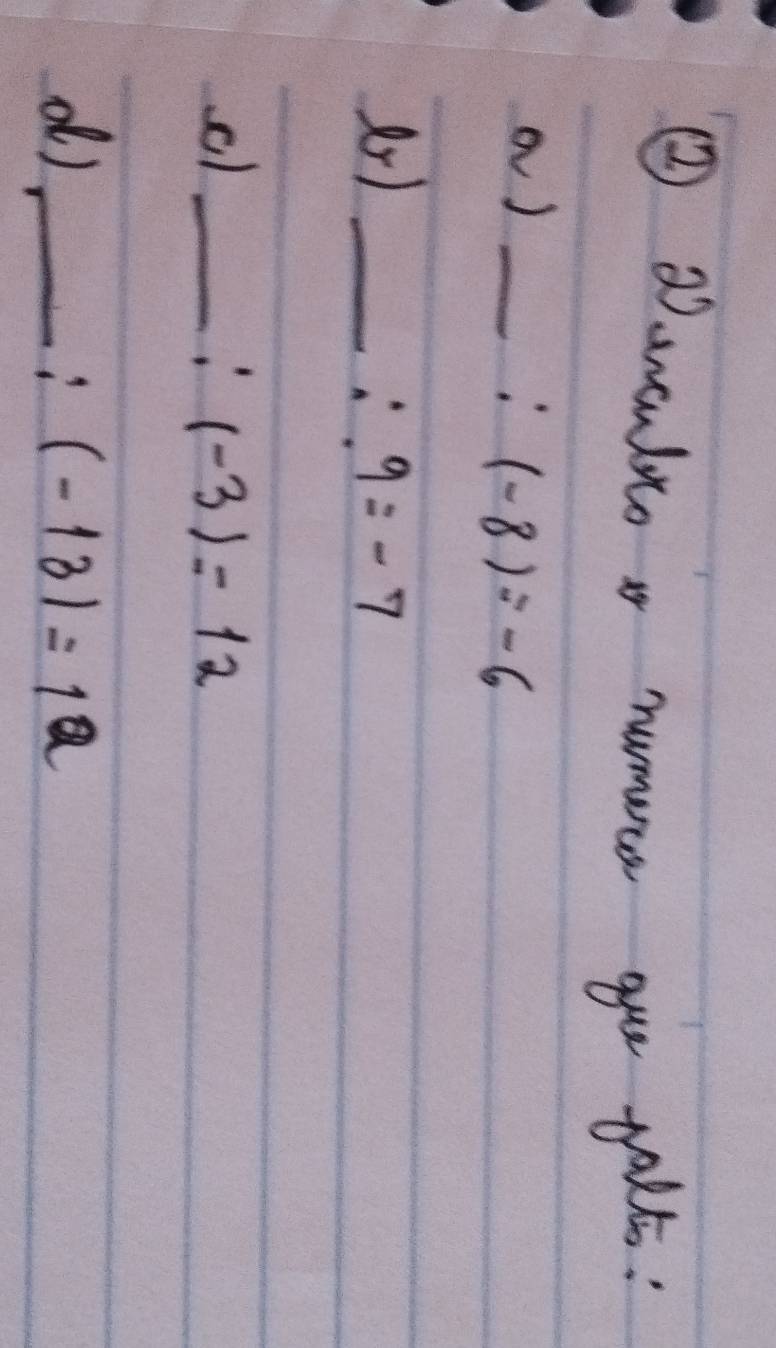 ② Descubra o numero que falta:
a) ___ : (-8) = -6
b) ___ : 9 = -7
c) ___ : (-3) = 12
d) ___ : (-13) = 12